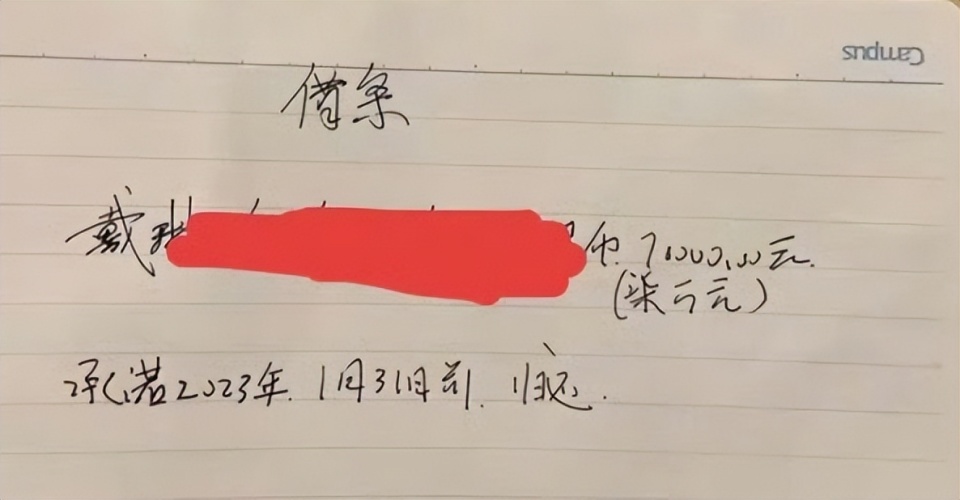 Campus
借条
戴 币 70000.00元.
(柒万元)
承诺2023年.1月31日前.归还.